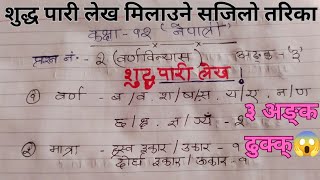 शुद्ध पारी लेख मिलाउने सजिलो तरिका
कक्षा -१२ "नेपाली"
प्रश्न नं. - २ (वर्णविन्यास) अङ्क - '३'
शुद्ध पारी लेख
१) वर्ण - ब/व, श/ष/स, य/ए, न/ण
छ/क्ष, ज्ञ/ग्यँ - २
२) मात्रा - ह्रस्व इकार/उकार - १
दीर्घ ईकार/ऊकार - १
३ अङ्क
ढुक्क